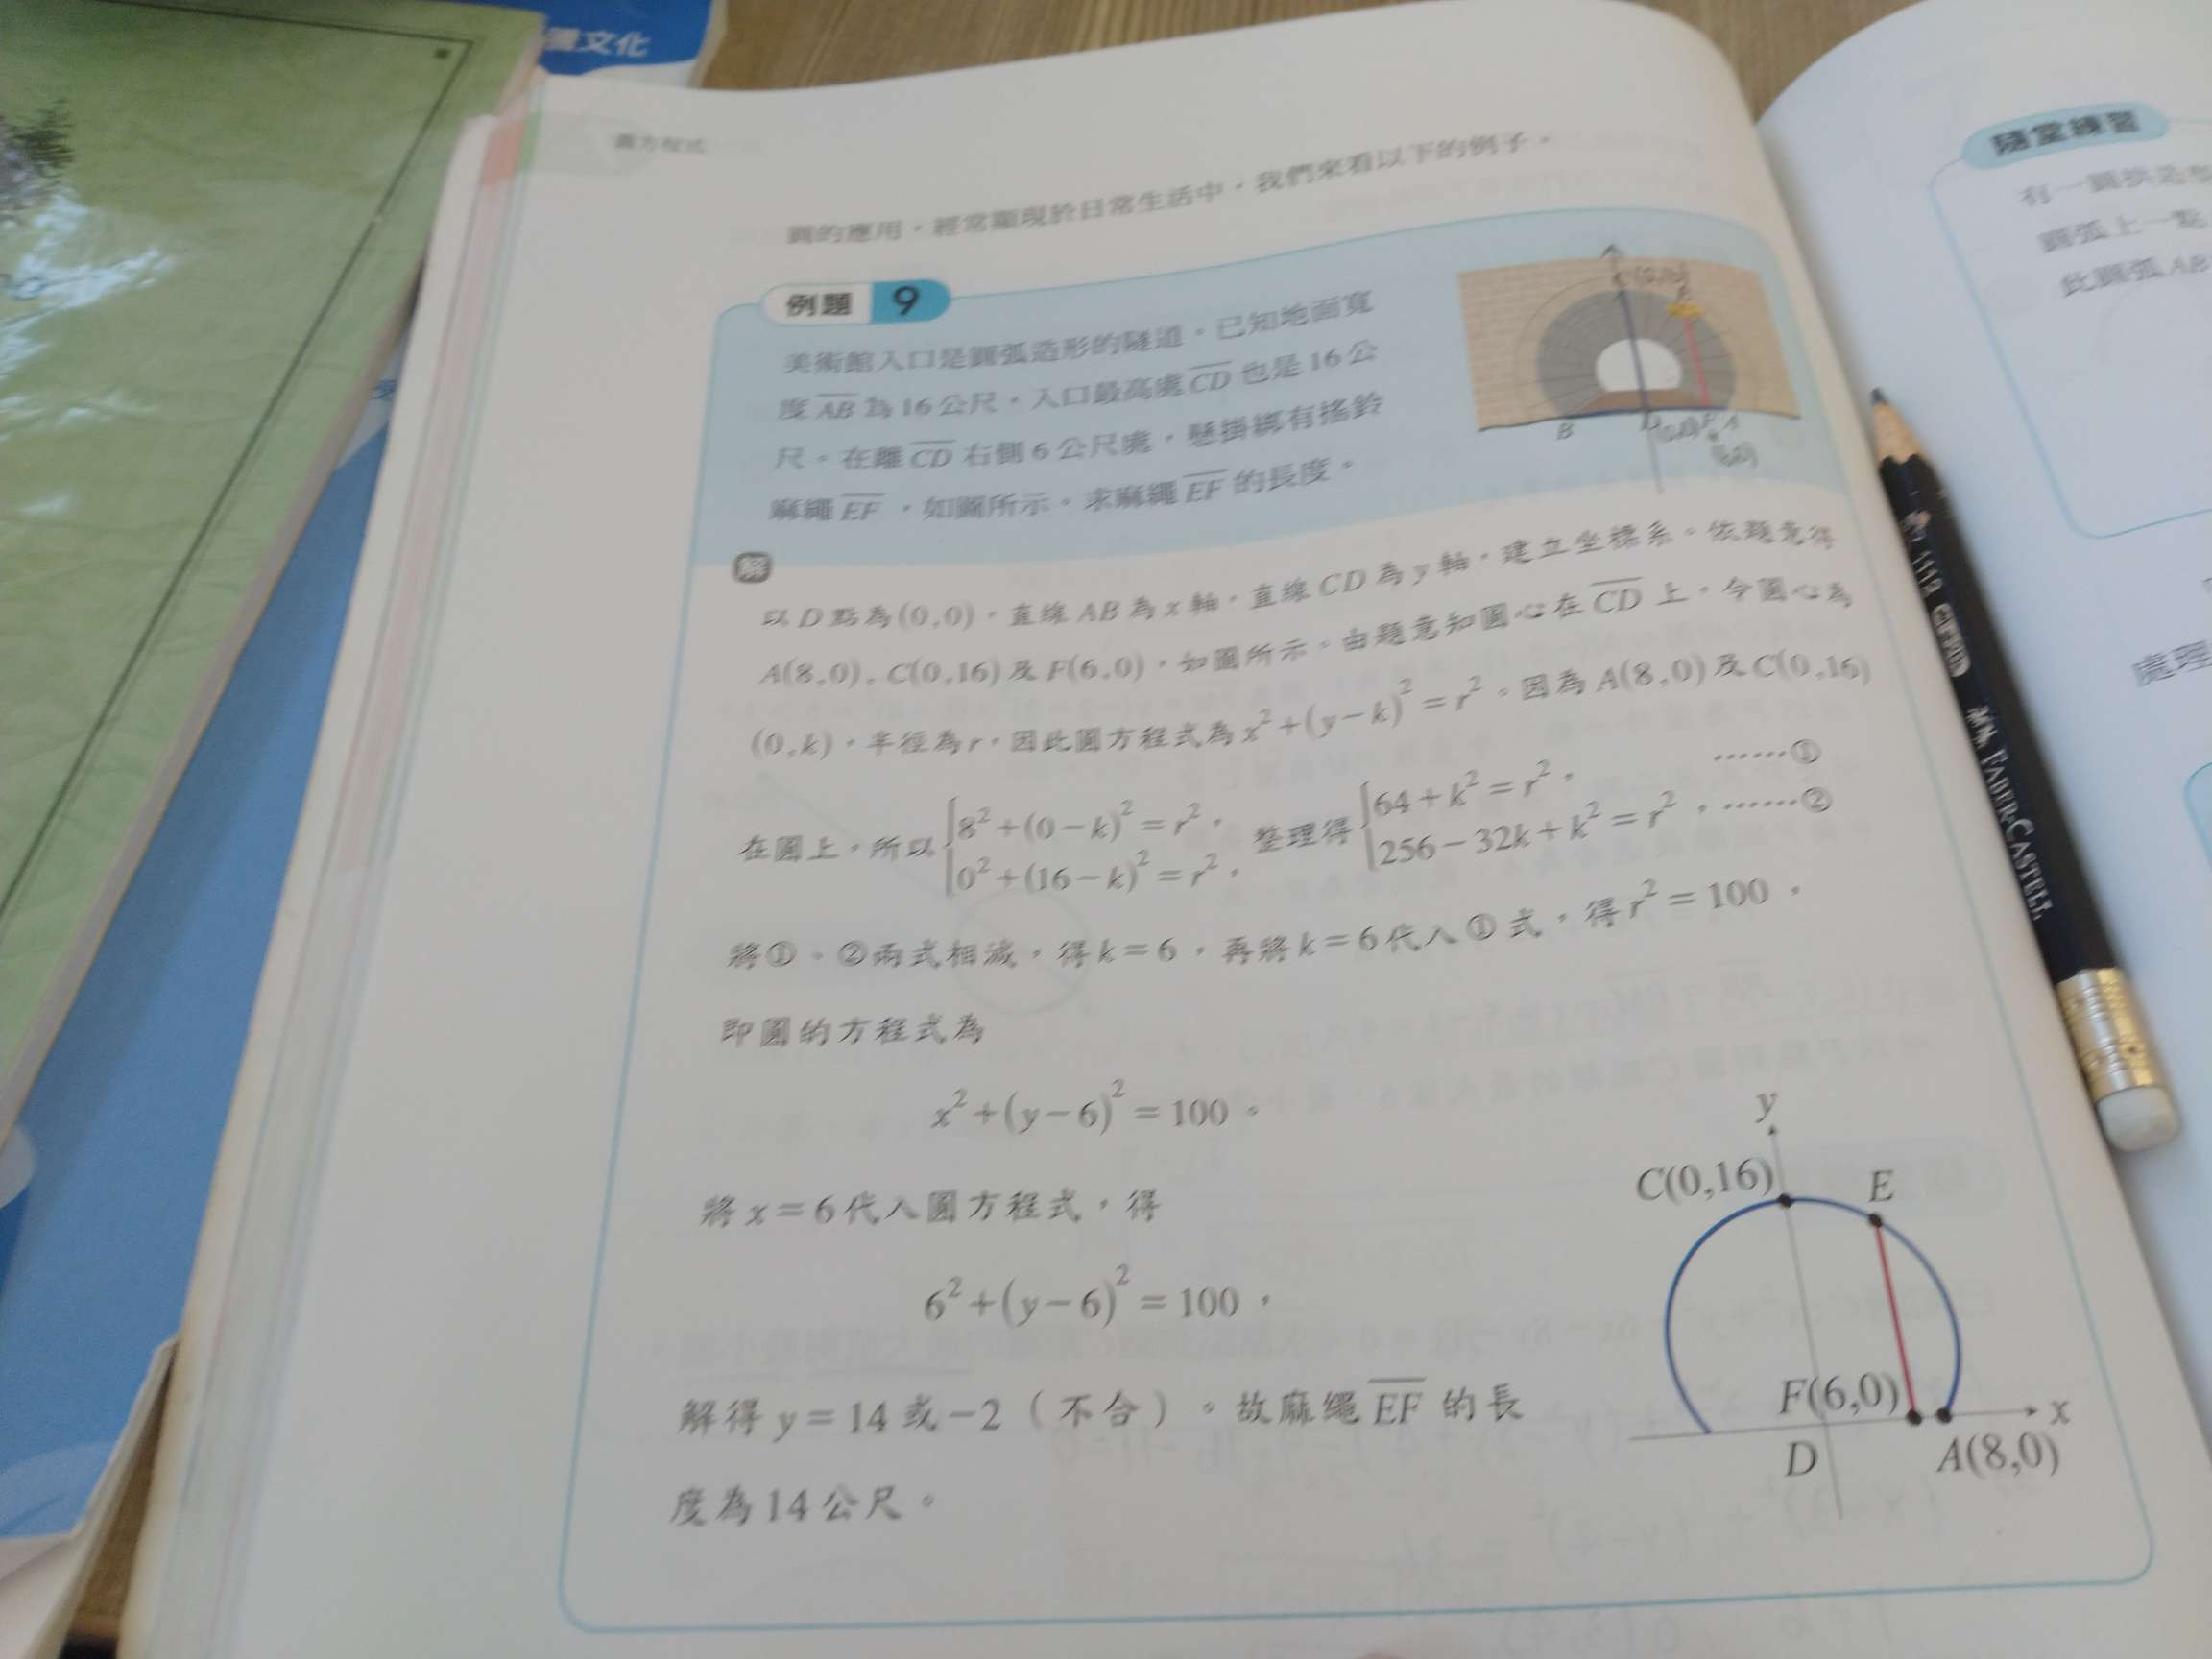 文化
圓方程式
圓的應用，經常顯現於日常生活中，我們來看以下的例子。
例題 9
美術館入口是圓弧造形的隧道。已知地面寬
度 AB 為 16 公尺，入口最高處 CD 也是 16 公
尺。在離 CD 右側 6 公尺處，懸掛綁有搖鈴
麻繩 EF ，如圖所示。求麻繩 EF 的長度。
B
A
解
以 D 點為 (0,0)，直線 AB 為 x 軸，直線 CD 為 y 軸，建立坐標系。依題意得
A(8,0), C(0,16) 及 F(6,0)，如圖所示。由題意知圓心在 CD 上，令圓心為
(0,k)，半徑為 r，因此圓方程式為 x²+(y−k)²=r²。因為 A(8,0) 及 C(0,16)
在圓上，所以 {8²+(0−k)²=r²， 0²+(16−k)²=r²， 整理得 {64+k²=r²， ……① 256−32k+k²=r²， ……②
將①、②兩式相減，得 k=6，再將 k=6 代入①式，得 r²=100，
即圓的方程式為
x²+(y−6)²=100。
將 x=6 代入圓方程式，得
6²+(y−6)²=100，
解得 y=14 或 −2（不合）。故麻繩 EF 的長
度為 14 公尺。
y
C(0,16)
E
F(6,0)
x
D
A(8,0)
隨堂練習
有一圓拱造型
圓弧上一點
此圓弧 AB
處理
1112
FABER-CASTELL